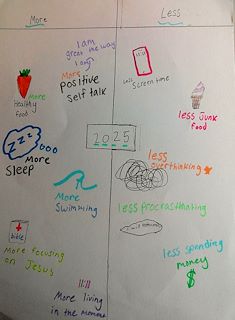 More
Less
I am
great the way
I am
More
positive
self talk
More
Healthy
food
Less
Screen time
less junk
food
zzz
More
Sleep
2025
less
overthinking
More
Swimming
less procrastinating
Bible
More focusing
on Jesus
11:11
More living
in the moment
less spending
money
$